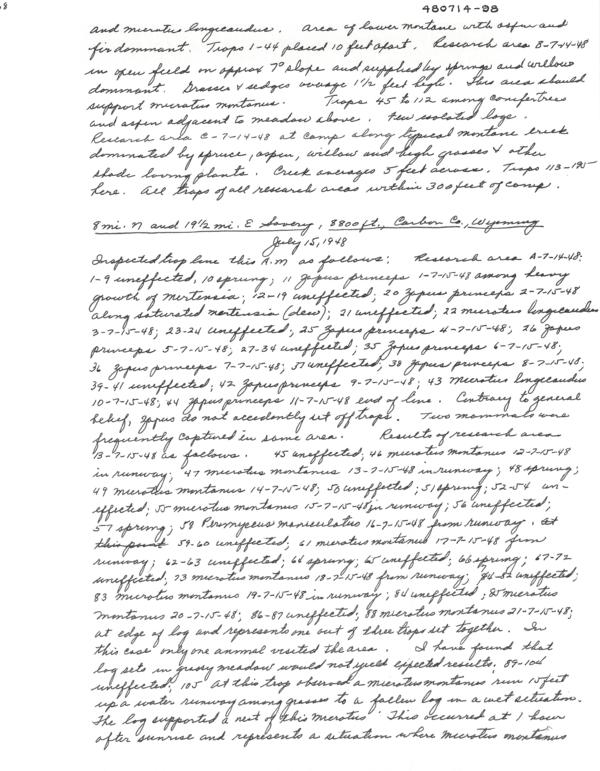 480714-98
and microtus longicaudus. Area of lower montane with aspen and
fir dominant. Traps 1-44 placed 10 feet apart. Research area B-7-14-48
in open field on approx 7° slope and supplied by springs and willow
dominant. Grasses & sedges average 1½ feet high. This area should
support microtus montanus. Traps 45 to 112 among conifertrees
and aspen adjacent to meadow above. Few isolated logs.
Research area C-7-14-48 at camp along typical montane creek
dominated by spruce, aspen, willow and high grasses & other
shade loving plants. Creek averages 5 feet across. Traps 113-195
here. All traps of all research areas within 300 feet of camp.
8 mi. N and 19½ mi. E Savery, 8800 ft., Carbon Co., Wyoming
July 15, 1948
Inspected trap line this A.M as follows: Research area A-7-14-48:
1-9 uneffected, 10 sprung; 11 Zapus princeps 1-7-15-48 among heavy
growth of Mertensia; 12-19 uneffected; 20 Zapus princeps 2-7-15-48
along saturated mertensia (dew); 21 uneffected; 22 microtus longicaudus
3-7-15-48; 23-24 uneffected; 25 Zapus princeps 4-7-15-48; 26 Zapus
princeps 5-7-15-48; 27-34 uneffected; 35 Zapus princeps 6-7-15-48;
36 Zapus princeps 7-7-15-48; 37 uneffected; 38 Zapus princeps 8-7-15-48;
39-41 uneffected; 42 Zapus princeps 9-7-15-48; 43 Microtus longicaudus
10-7-15-48; 44 Zapus princeps 11-7-15-48 end of line. Contrary to general
belief, Zapus do not accidently set off traps. Two mammals were
frequently captured in same area. Results of research area
B-7-15-48 as follows. 45 uneffected, 46 microtus montanus 12-7-15-48
in runway; 47 microtus montanus 13-7-15-48 in runway; 48 sprung;
49 microtus montanus 14-7-15-48; 50 uneffected; 51 sprung; 52-54 un-
effected; 55 microtus montanus 15-7-15-48 in runway; 56 uneffected;
57 sprung; 58 Peromyscus maniculatus 16-7-15-48 from runway. At
this point 59-60 uneffected; 61 microtus montanus 17-7-15-48 from
runway; 62-63 uneffected; 64 sprung; 65 uneffected; 66 sprung; 67-72
uneffected, 73 microtus montanus 18-7-15-48 from runway; 74-82 uneffected;
83 microtus montanus 19-7-15-48 in runway; 84 uneffected; 85 microtus
montanus 20-7-15-48; 86-87 uneffected; 88 microtus montanus 21-7-15-48;
at edge of log and represents one out of three traps set together. In
this case only one animal visited the area. I have found that
log sets in grassy meadow would not yield expected results; 89-104
uneffected; 105 At this trap observed a microtus montanus run 15 feet
up a water runway among grasses to a fallen log in a wet situation.
The log supported a nest of this microtus. This occurred at 1 hour
after sunrise and represents a situation where microtus montanus